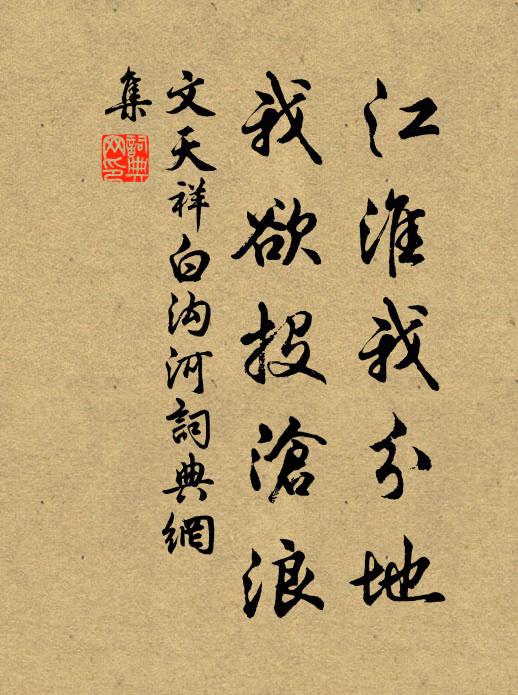 江淮我分地
我欲投滄浪
文天祥白沟河詞典網
集
詞典
网印